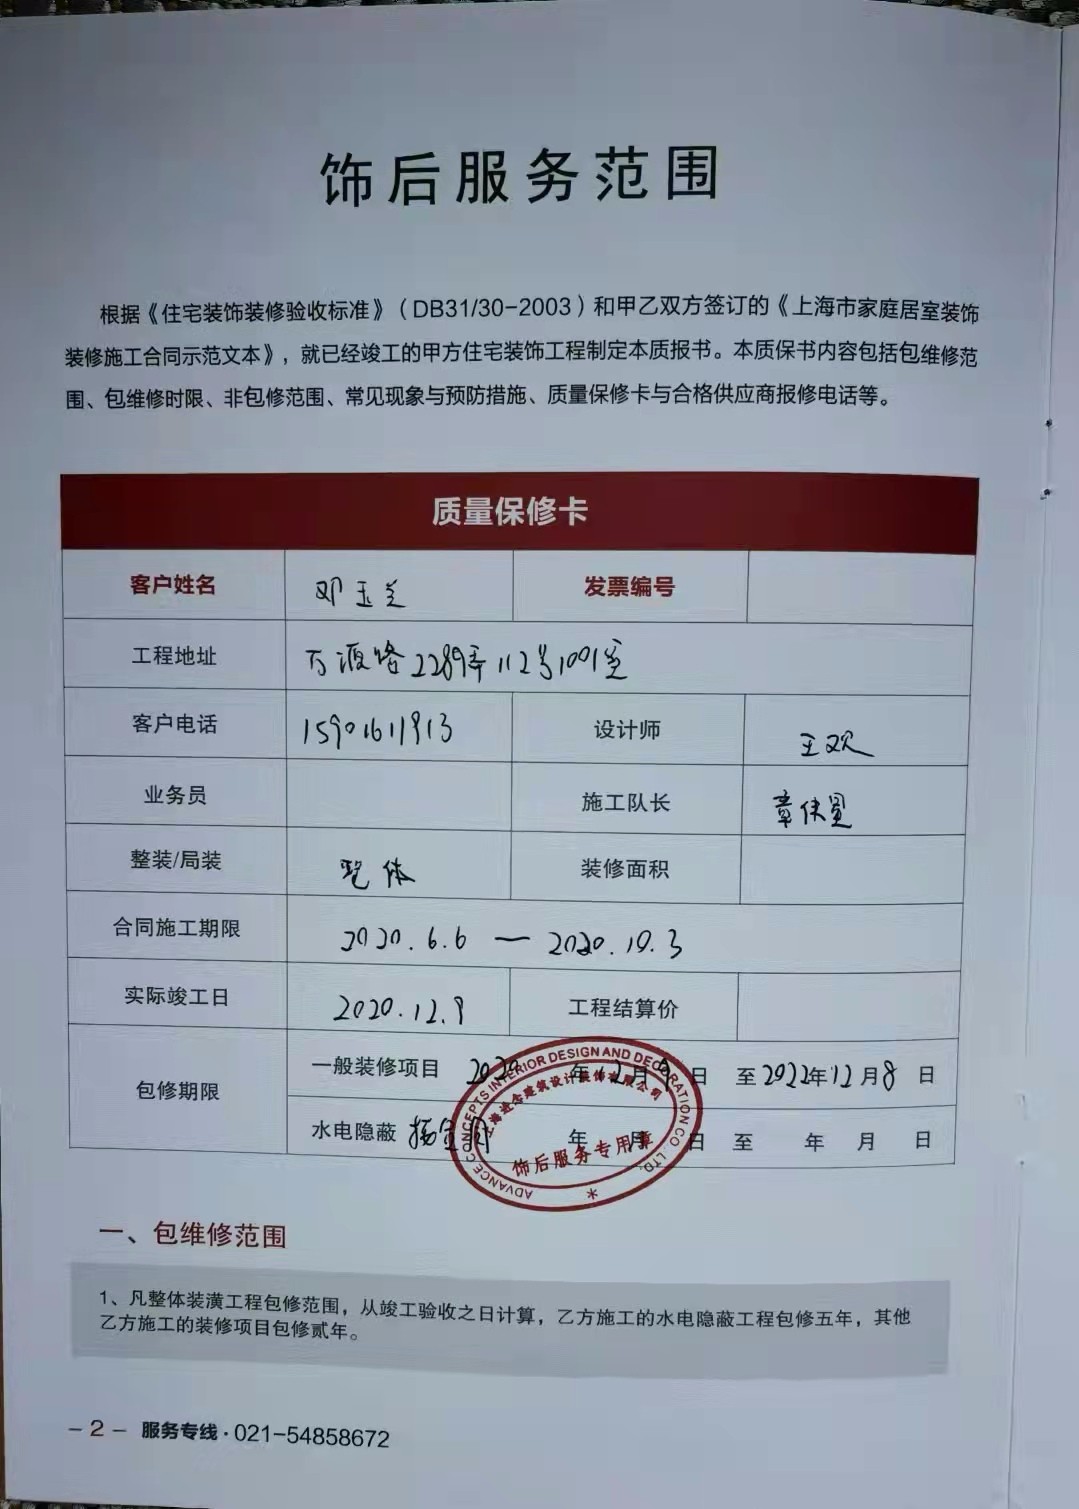 饰后服务范围
根据《住宅装饰装修验收标准》（DB31/30-2003）和甲乙双方签订的《上海市家庭居室装饰
装修施工合同示范文本》，就已经竣工的甲方住宅装饰工程制定本质报书。本质保书内容包括包维修范
围、包维修时限、非包修范围、常见现象与预防措施、质量保修卡与合格供应商报修电话等。
质量保修卡
客户姓名 邓玉兰 发票编号
工程地址 万源路2289弄112号1001室
客户电话 15901611913 设计师 王欢
业务员 施工队长 章伟
整装/局装 整体 装修面积
合同施工期限 2020.6.6 — 2020.10.3
实际竣工日 2020.12.9 工程结算价
包修期限 一般装修项目 2020年12月9日 至2022年12月8日
水电隐蔽 年 月 日 至 年 月 日
ADVANCE CONCEPTS INTERIOR DESIGN AND DECORATION CO., LTD.
上海进念建筑设计装饰有限公司
饰后服务专用章
一、包维修范围
1、凡整体装潢工程包修范围，从竣工验收之日计算，乙方施工的水电隐蔽工程包修五年，其他
乙方施工的装修项目包修贰年。
- 2 - 服务专线·021-54858672